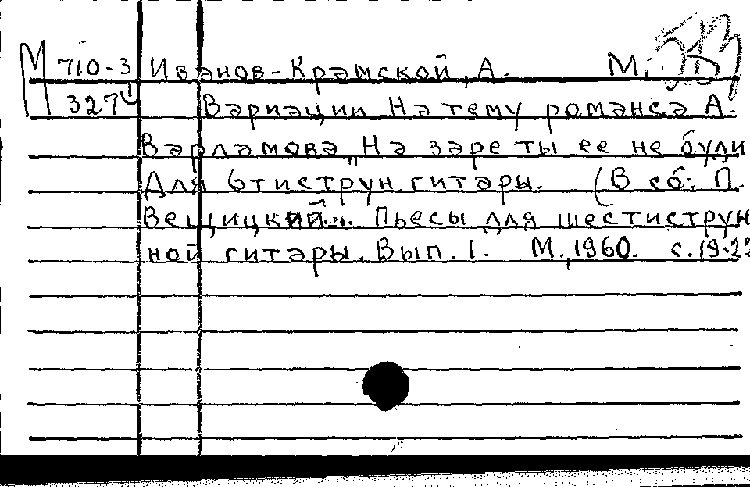 М 710-3 Иванов-Крамской, А. М,
327 Вариации На тему романса А.
Варламова „На заре ты ее не буди
Для 6тиструн. гитары. (В сб: П.
Вещицкий. Пьесы для шестиструн
ной гитары. Вып. 1. М., 1960. с.19-22